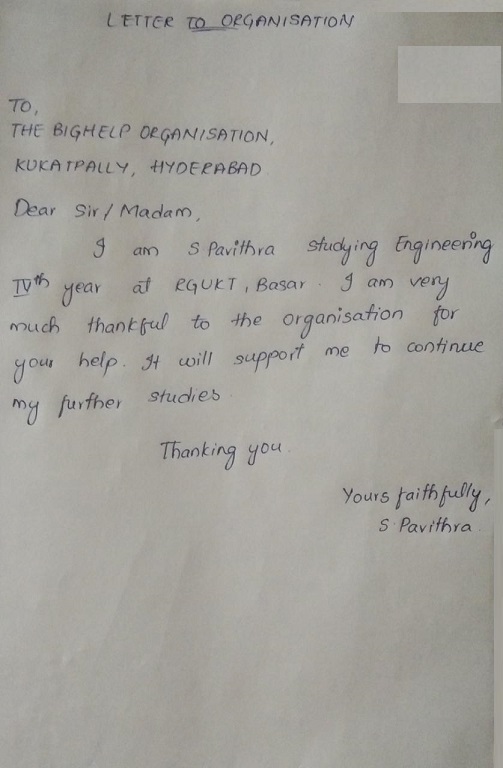 LETTER TO ORGANISATION
TO,
THE BIGHELP ORGANISATION,
KUKATPALLY, HYDERABAD
Dear Sir/Madam,
I am S Pavithra studying Engineering
IVth year at RGUKT, Basar. I am very
much thankful to the organisation for
your help. It will support me to continue
my further studies.
Thanking you.
Yours faithfully,
S. Pavithra